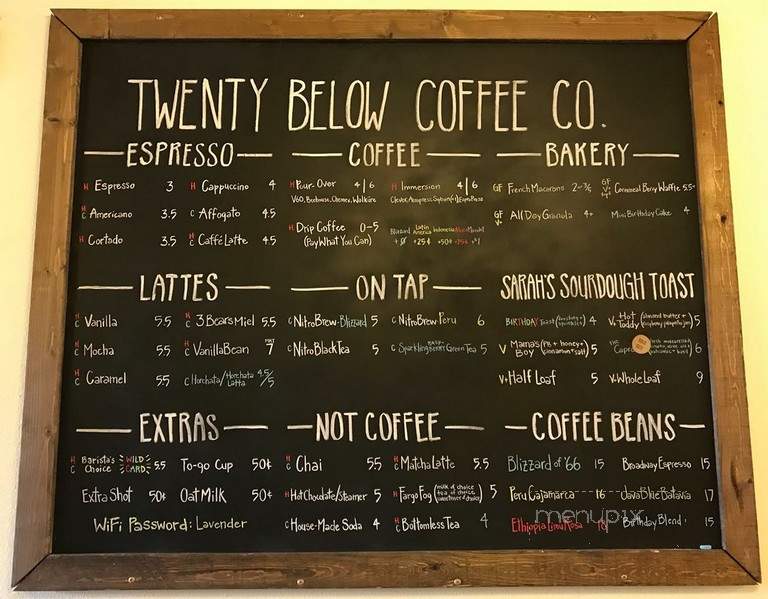 TWENTY BELOW COFFEE CO.
ESPRESSO
H Espresso 3
H Cappuccino 4
H C Americano 3.5
C Affogato 4.5
H Cortado 3.5
H C Caffé Latte 4.5
COFFEE
H Pour-Over 4|6
V60, Beehouse, Chemex, Walküre
H Immersion 4|6
H Drip Coffee 0-5
(Pay What You Can)
Blizzard Latin America Indonesia
+25¢ +50¢ +75¢ +1
BAKERY
GF French Macarons 2-3/6
GF V+ Cornmeal Berry Waffle 5.5+
GF V+ All Day Granola 4+
Mini Birthday Cake 4
LATTES
H C Vanilla 5.5
H C 3 Bears Miel 5.5
H C Mocha 5.5
H C Vanilla Bean 7
H C Caramel 5.5
C Horchata/Horchata Latta 4.5/5
ON TAP
C Nitro Brew-Blizzard 5
C Nitro Brew-Peru 6
C Nitro Black Tea 5
C Sparkling Berry Green Tea 5
SARAH'S SOURDOUGH TOAST
BIRTHDAY Toast 4
V+ Hot Toddy (almond butter + raspberry jalapeño jam) 5
V Mama's Boy (PB + honey + cinnamon + salt) 5
6
V+ Half Loaf 5
V+ Whole Loaf 9
EXTRAS
H C Barista's Choice WILD CARD 5.5
To-go Cup 50¢
Extra Shot 50¢
Oat Milk 50¢
WiFi Password: Lavender
NOT COFFEE
H C Chai 5.5
H C Matcha Latte 5.5
H Hot Chocolate/Steamer 5
H Fargo Fog (milk of choice tea of choice sweetener of choice) 5
C House-Made Soda 4
H C Bottomless Tea 4
COFFEE BEANS
Blizzard of '66 15
Broadway Espresso 15
Peru Cajamarca 16
Java Blue Batavia 17
Ethiopia Limu Kosa 18
Birthday Blend 15
menupix